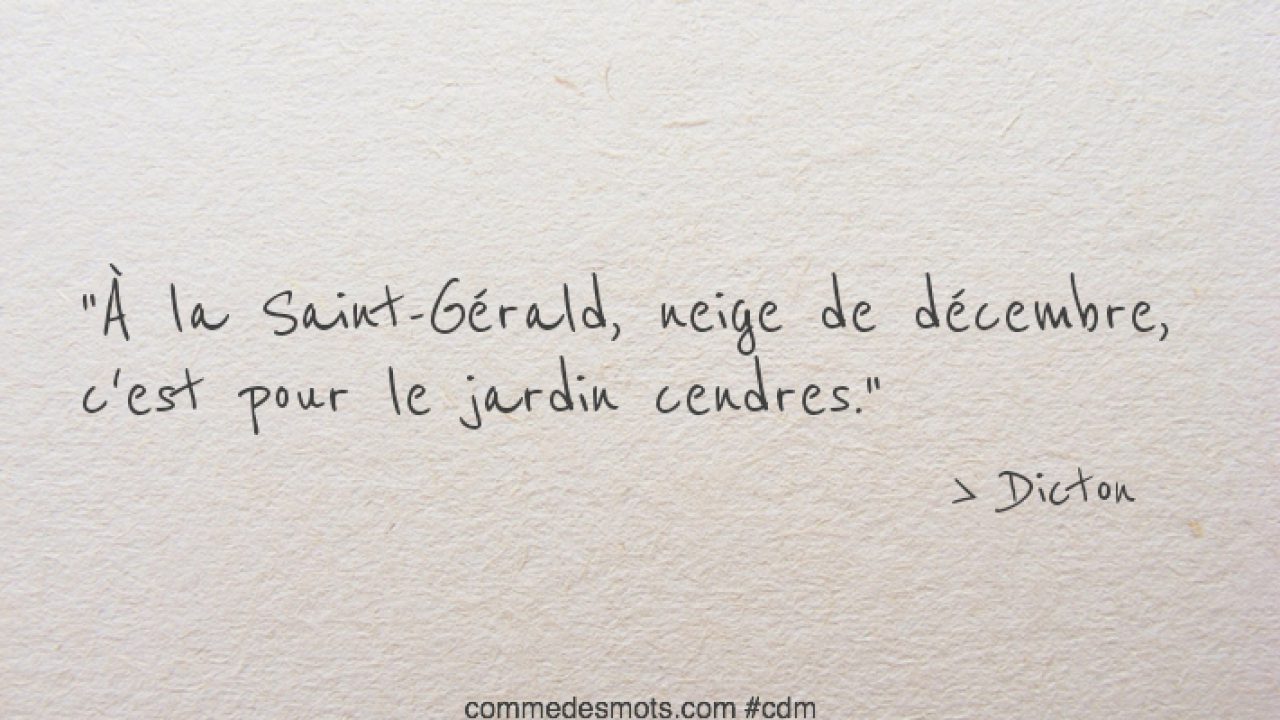 "À la Saint-Gérald, neige de décembre,
c'est pour le jardin cendres."
> Dicton
commedesmots.com #cdm